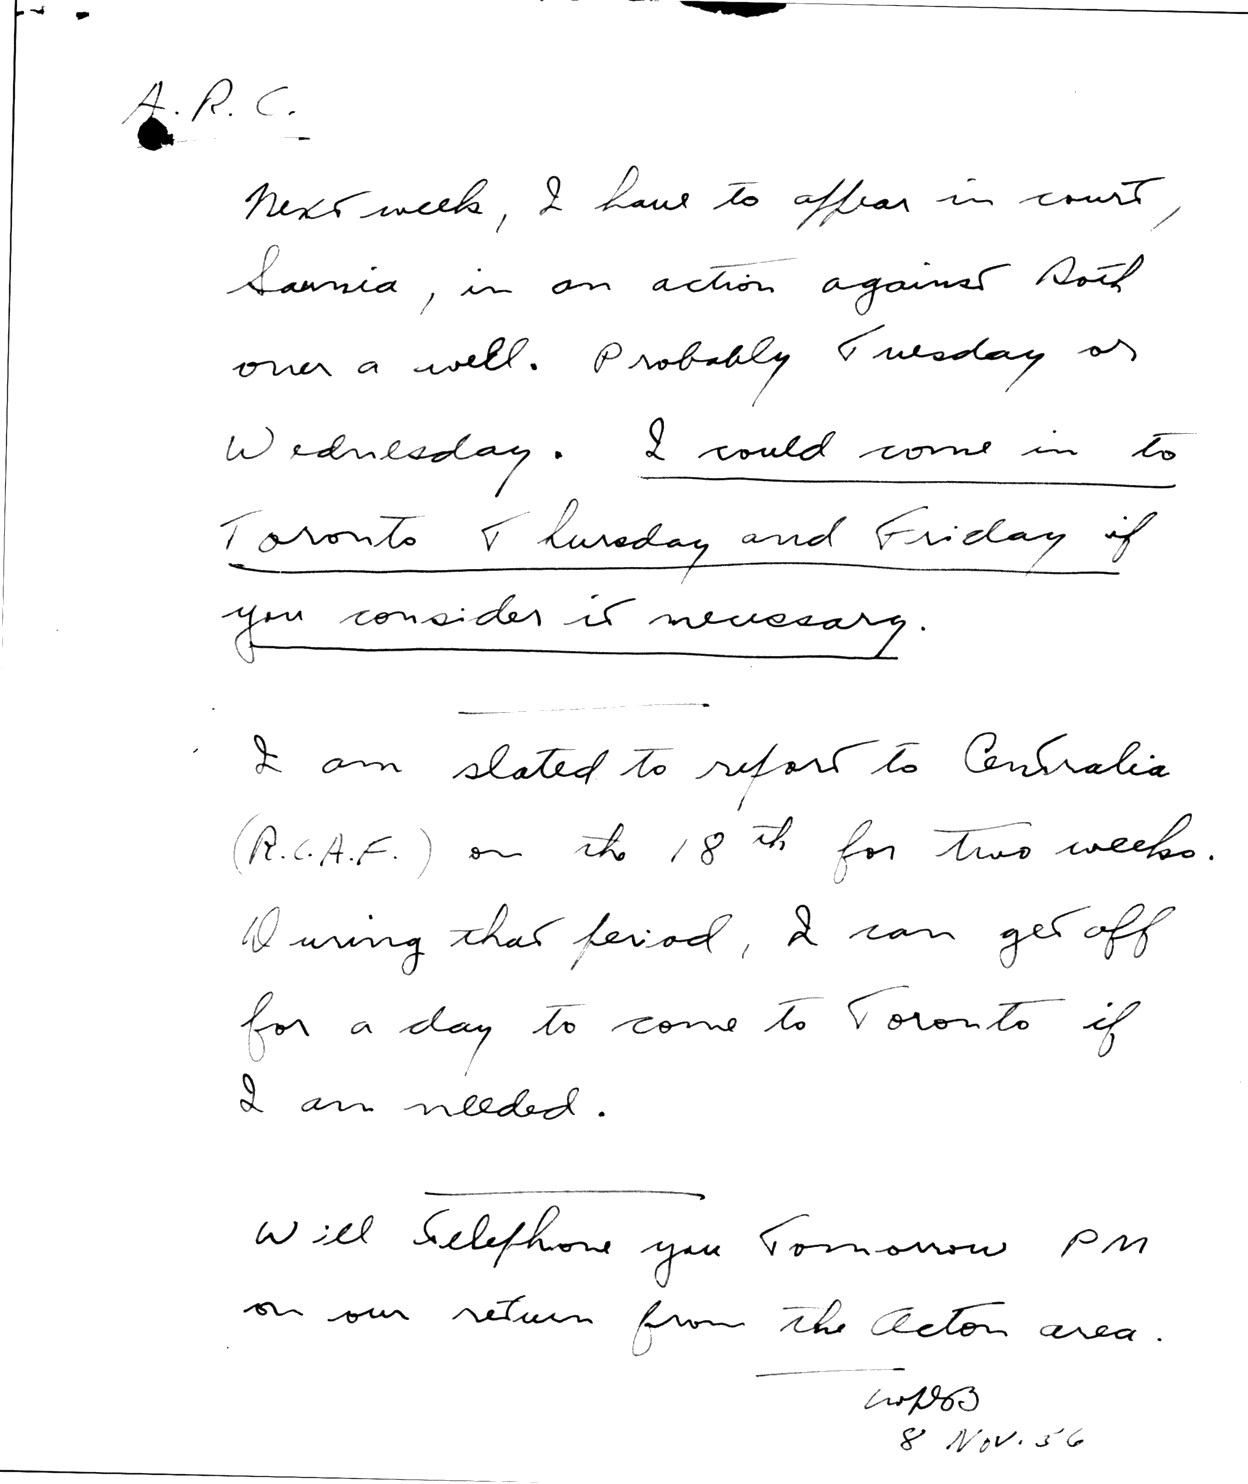 A. R. C.
Next week, I have to appear in court,
Sarnia, in an action against Roth
over a well. Probably Tuesday or
Wednesday. I could come in to
Toronto Thursday and Friday if
you consider it necessary.
I am slated to report to Centralia
(R.C.A.F.) on the 18th for two weeks.
During that period, I can get off
for a day to come to Toronto if
I am needed.
Will Telephone you Tomorrow PM
on our return from the Acton area.
8 Nov. 56